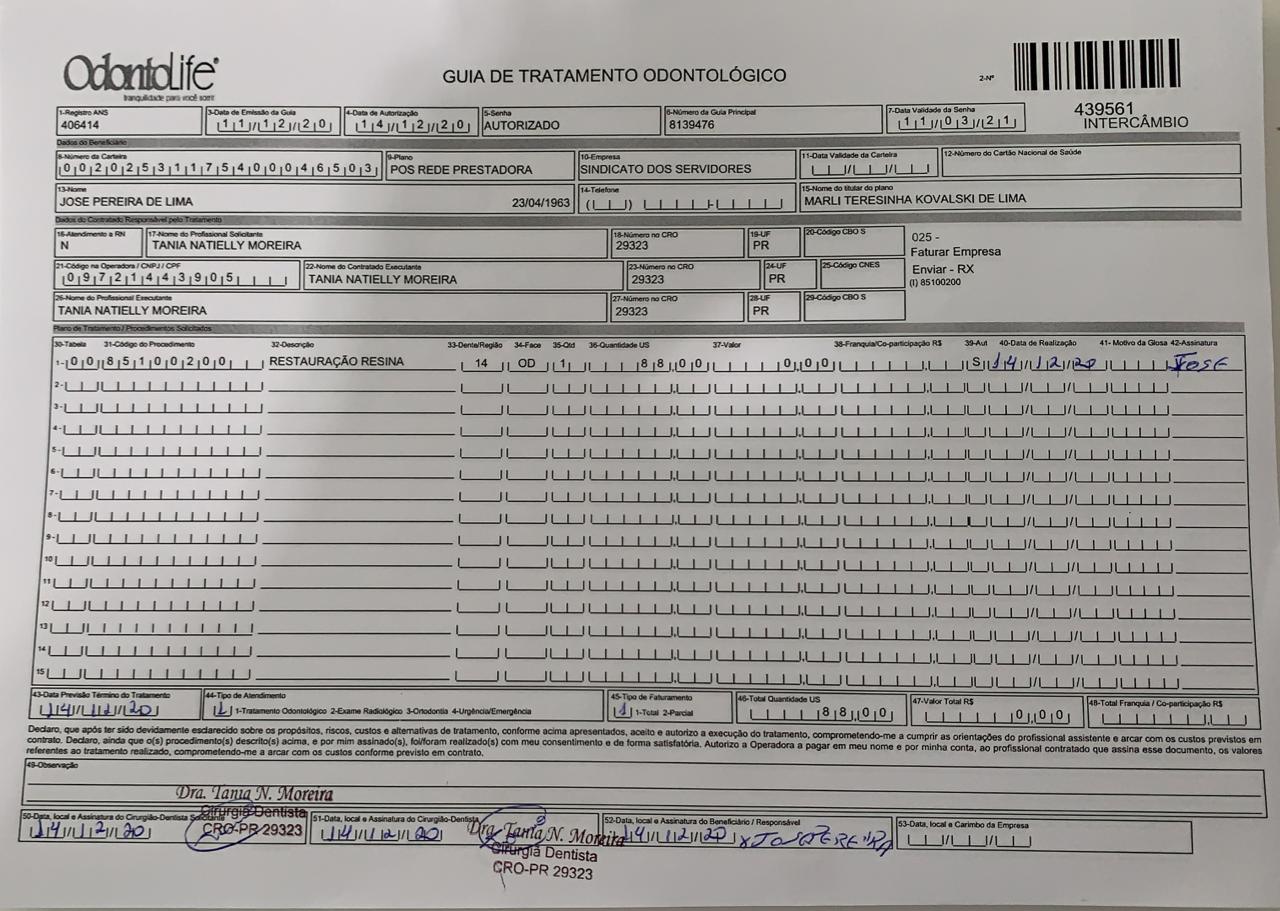 OdontoLife
tranquilidade para você sorrir
GUIA DE TRATAMENTO ODONTOLÓGICO
2-Nº
439561
INTERCÂMBIO
1-Registro ANS
406414
3-Data de Emissão da Guia
11/12/20
4-Data de Autorização
14/12/20
5-Senha
AUTORIZADO
6-Número da Guia Principal
8139476
7-Data Validade da Senha
11/03/21
Dados do Beneficiário
8-Número da Carteira
00202531175400046503
9-Plano
POS REDE PRESTADORA
10-Empresa
SINDICATO DOS SERVIDORES
11-Data Validade da Carteira
12-Número do Cartão Nacional de Saúde
13-Nome
JOSE PEREIRA DE LIMA 23/04/1963
14-Telefone
15-Nome do titular do plano
MARLI TERESINHA KOVALSKI DE LIMA
Dados do Contratado Responsável pelo Tratamento
16-Atendimento a RN
N
17-Nome do Profissional Solicitante
TANIA NATIELLY MOREIRA
18-Número no CRO
29323
19-UF
PR
20-Código CBO S
025 -
Faturar Empresa
Enviar - RX
(I) 85100200
21-Código na Operadora / CNPJ / CPF
09721443905
22-Nome do Contratado Executante
TANIA NATIELLY MOREIRA
23-Número no CRO
29323
24-UF
PR
25-Código CNES
26-Nome do Profissional Executante
TANIA NATIELLY MOREIRA
27-Número no CRO
29323
28-UF
PR
29-Código CBO S
Plano de Tratamento / Procedimentos Solicitados
30-Tabela 31-Código do Procedimento 32-Descrição 33-Dente/Região 34-Face 35-Qtd 36-Quantidade US 37-Valor 38-Franquia/Co-participação R$ 39-Aut 40-Data de Realização 41- Motivo da Glosa 42-Assinatura
1- 00 85100200 RESTAURAÇÃO RESINA 14 OD 1 88,00 0,00 S 14/12/20 JOSE
2-
3-
4-
5-
6-
7-
8-
9-
10
11
12
13
14
15
43-Data Previsão Término do Tratamento
14/12/20
44-Tipo de Atendimento
1 1-Tratamento Odontológico 2-Exame Radiológico 3-Ortodontia 4-Urgência/Emergência
45-Tipo de Faturamento
1 1-Total 2-Parcial
46-Total Quantidade US
88,00
47-Valor Total R$
0,00
48-Total Franquia / Co-participação R$
Declaro, que após ter sido devidamente esclarecido sobre os propósitos, riscos, custos e alternativas de tratamento, conforme acima apresentados, aceito e autorizo a execução do tratamento, comprometendo-me a cumprir as orientações do profissional assistente e arcar com os custos previstos em
contrato. Declaro, ainda que o(s) procedimento(s) descrito(s) acima, e por mim assinado(s), foi/foram realizado(s) com meu consentimento e de forma satisfatória. Autorizo a Operadora a pagar em meu nome e por minha conta, ao profissional contratado que assina esse documento, os valores
referentes ao tratamento realizado, comprometendo-me a arcar com os custos conforme previsto em contrato.
49-Observação
Dra. Tania N. Moreira
Cirurgiã Dentista
CRO-PR 29323
50-Data, local e Assinatura do Cirurgião-Dentista Solicitante
14/12/20
51-Data, local e Assinatura do Cirurgião-Dentista
14/12/20
Dra. Tania N. Moreira
Cirurgiã Dentista
CRO-PR 29323
52-Data, local e Assinatura do Beneficiário / Responsável
14/12/20 x JOSE PEREIRA
53-Data, local e Carimbo da Empresa